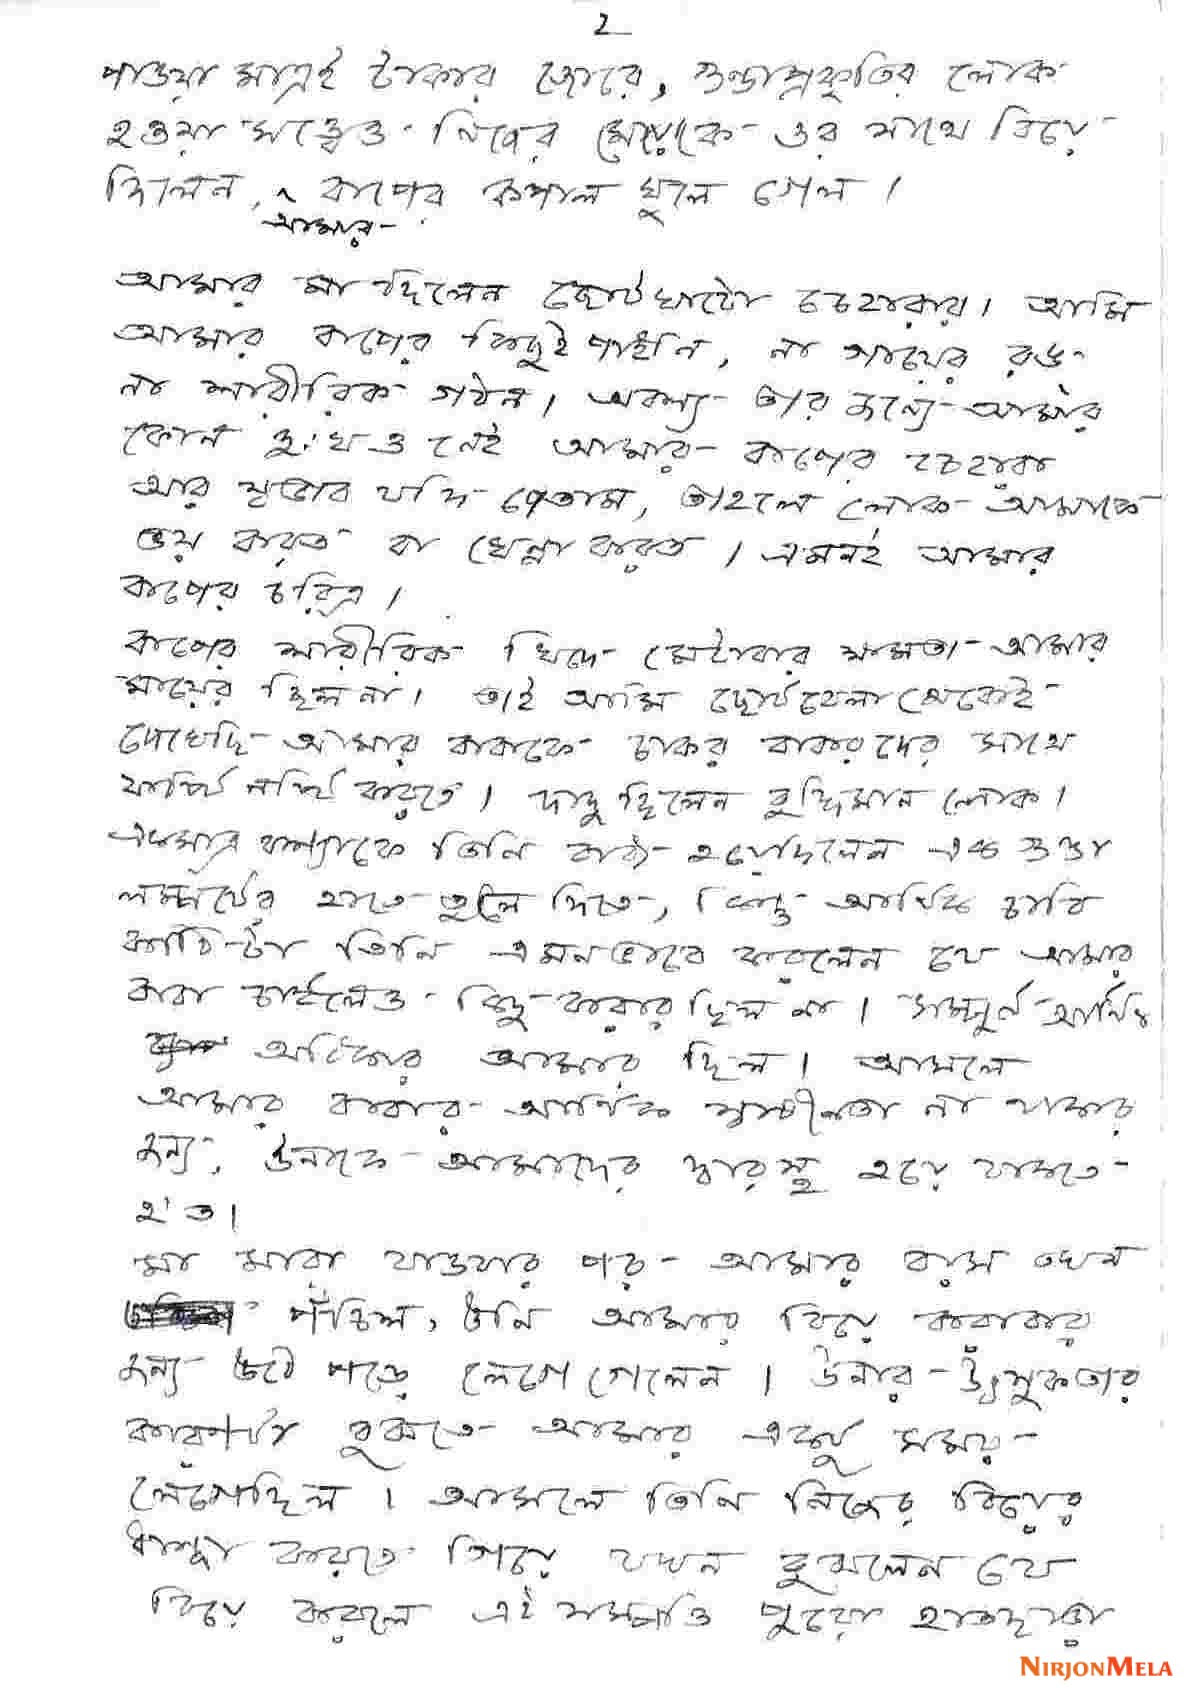 2
পাওয়া মাত্রই টাকার জোরে, গুন্ডাপ্রকৃতির লোক
হওয়া সত্ত্বেও নিজের মেয়েকে ওর সাথে বিয়ে
দিলেন, ^ বাপের কপাল খুলে গেল।
আমার
আমার মা ছিলেন ছোটখাটো চেহারার। আমি
আমার বাপের কিছুই পাইনি, না গায়ের রঙ
না শারীরিক গঠন। অবশ্য তার জন্যে আমার
কোন দুঃখও নেই আমার বাপের চেহারা
আর স্বভাব যদি পেতাম, তাহলে লোক আমাকে
ভয় করত বা ঘেন্না করত। এমনই আমার
বাপের চরিত্র।
বাপের শারীরিক খিদে মেটাবার ক্ষমতা আমার
মায়ের ছিল না। তাই আমি ছোটবেলা থেকেই
দেখেছি আমার বাবাকে চাকর বাকরদের সাথে
ফষ্টি নষ্টি করতে। দাদু ছিলেন বুদ্ধিমান লোক।
একমাত্র কন্যাকে তিনি বাধ্য হয়েছিলেন এক গুন্ডা
লম্পটের হাতে তুলে দিতে, কিন্তু আর্থিক চাবি
কাঠি টা তিনি এমনভাবে করলেন যে আমার
বাবা চাইলেও কিছু করার ছিল না। সম্পূর্ন আর্থিক
অধিকার আমার ছিল। আসলে
আমার বাবার আর্থিক স্বাধীনতা না থাকার
জন্য, উনাকে আমাদের দ্বারস্থ হয়ে থাকতে
হ'ত।
মা মারা যাওয়ার পর আমার বয়স তখন
পঁচিশ, উনি আমার বিয়ে করাবার
জন্য উঠে পড়ে লেগে গেলেন। উনার উৎসুকতার
কারণটা বুঝতে আমার একটু সময়
লেগেছিল। আসলে তিনি নিজের বিয়ের
ধান্দা করতে গিয়ে যখন বুঝলেন যে
বিয়ে করলে এই সম্পত্তি পুরো হাতছাড়া
NIRJONMELA